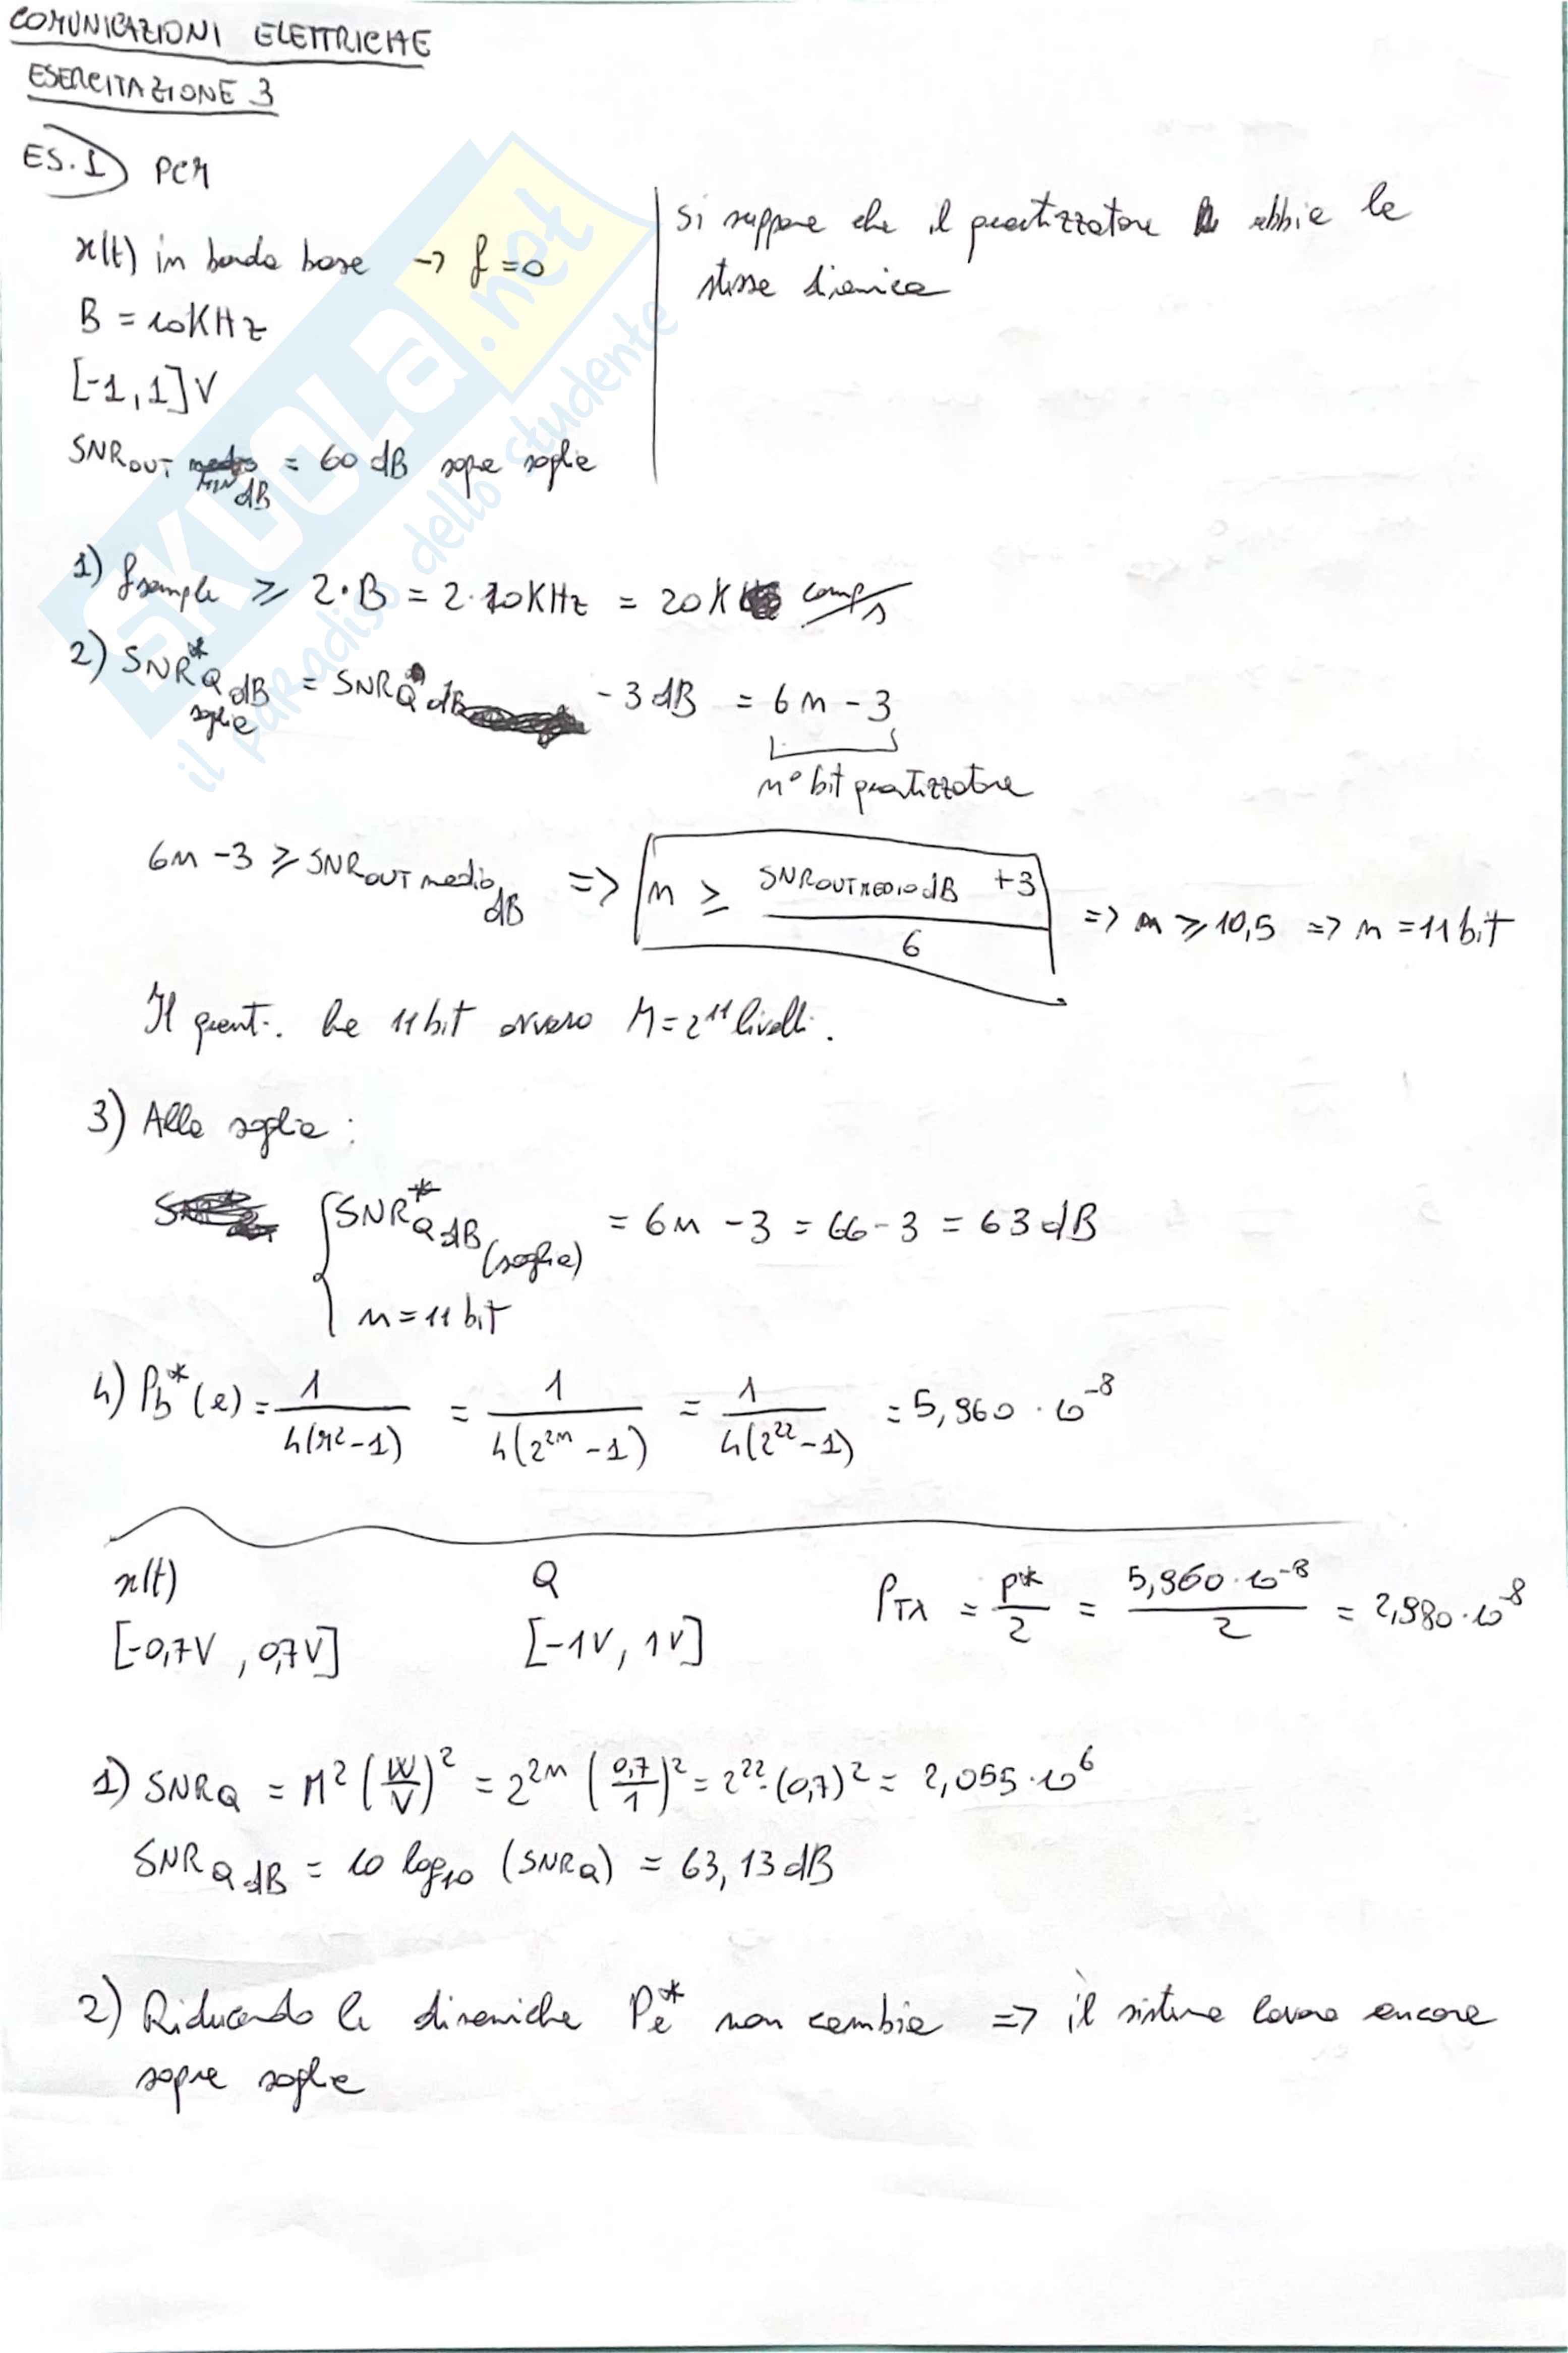 COMUNICAZIONI ELETTRICHE
ESERCITAZIONE 3
ES.1) PCM
x(t) in banda base → f=0
B = 10KHz
[-1,1]V
SNR OUT MIN dB = 60 dB sopra soglia
si suppone che il quantizzatore abbia la
stessa dinamica
1) fsample ≥ 2·B = 2·10KHz = 20K camp/s
2) SNR*Q dB soglia = SNRQ dB - 3 dB = 6n - 3
n° bit quantizzatore
6n - 3 ≥ SNR OUT medio dB => n ≥ (SNR OUT MEDIO dB + 3)/6 => n ≥ 10,5 => n = 11 bit
Il quant. ha 11 bit ovvero M = 2^11 livelli.
3) Alla soglia:
SNR*Q dB (soglia) = 6n - 3 = 66 - 3 = 63 dB
n = 11 bit
4) Pb*(e) = 1/(4(M²-1)) = 1/(4(2^2n - 1)) = 1/(4(2^22 - 1)) = 5,960 · 10^-8
x(t)
[-0,7V , 0,7V]
Q
[-1V, 1V]
PTX = P*/2 = 5,960·10^-8/2 = 2,980·10^-8
1) SNRQ = M² (W/V)² = 2^2n (0,7/1)² = 2^22·(0,7)² = 2,055·10^6
SNRQ dB = 10 log10 (SNRQ) = 63,13 dB
2) Riducendo la dinamiche Pe* non cambia => il sistema lavora ancora
sopra soglia
SKUOLA.net
il paradiso dello studente